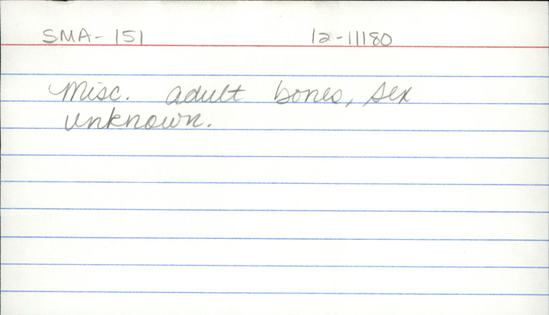 SMA-151 12-11180
Misc. adult bones, sex
unknown.